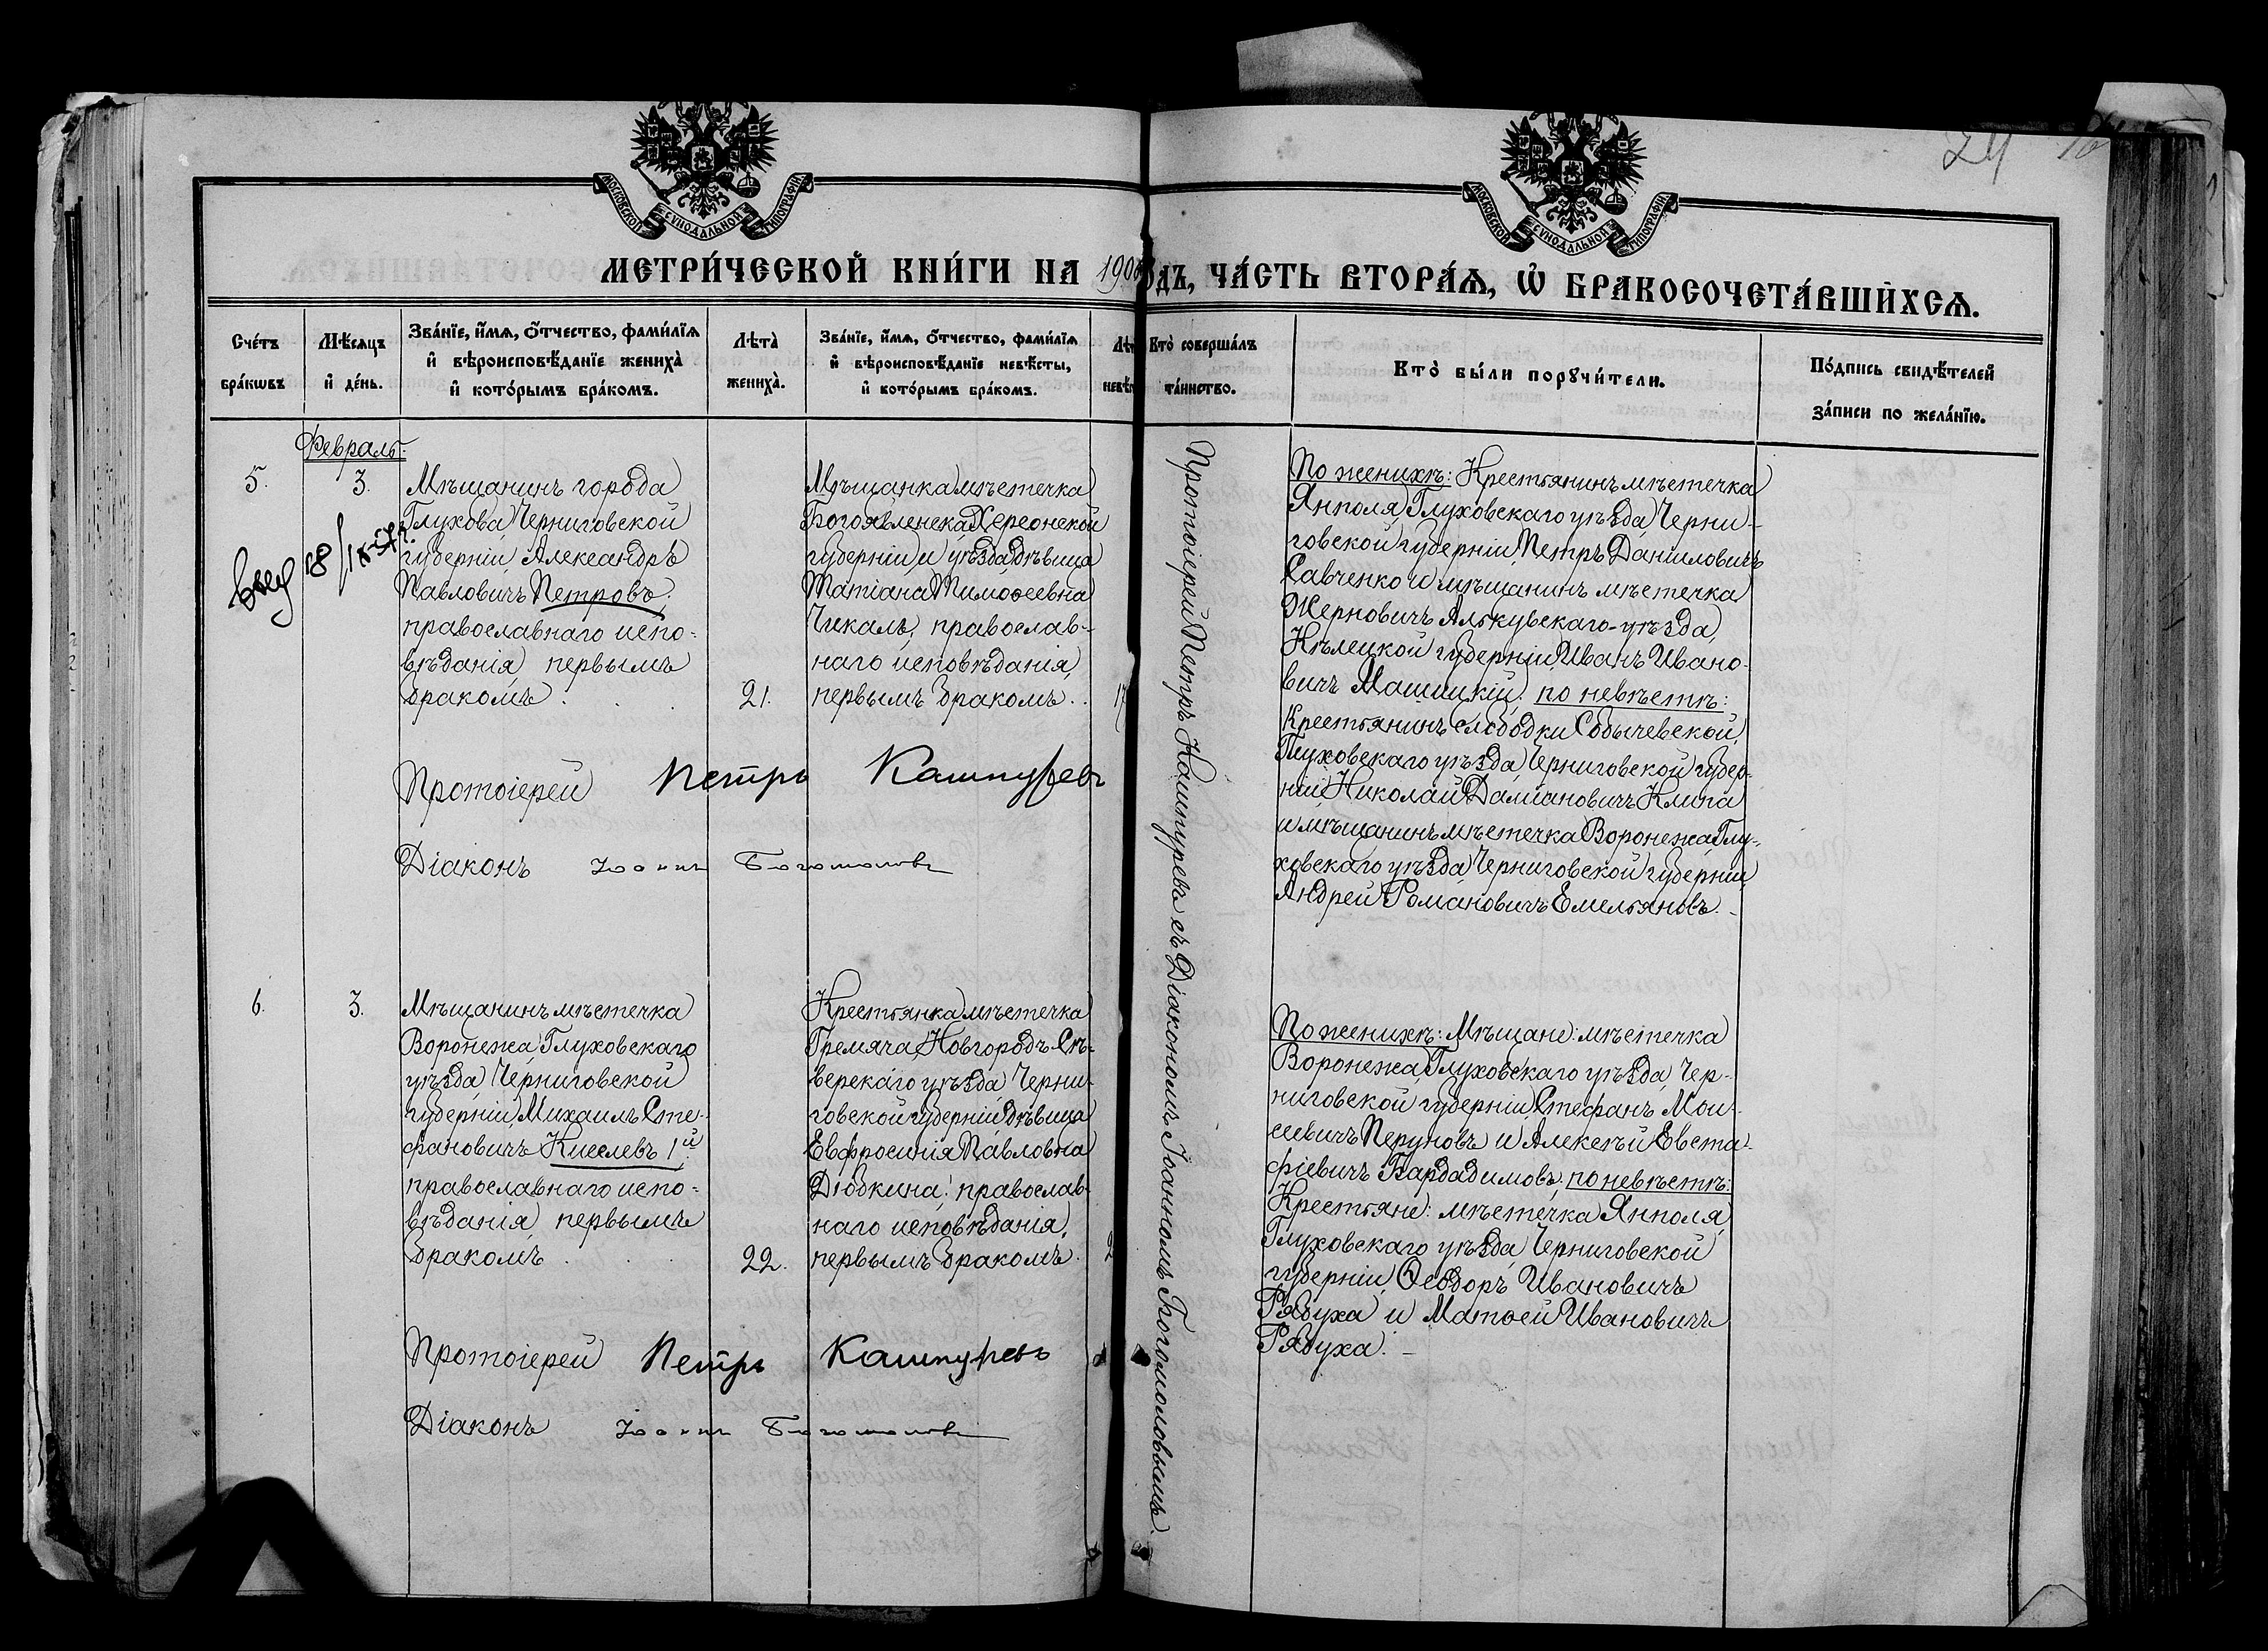 24
МОСКОВСКОЙ СУНОДАЛЬНОЙ ТИПОГРАФІИ
МОСКОВСКОЙ СУНОДАЛЬНОЙ ТИПОГРАФІИ
МЕТРИ́ЧЕСКОЙ КНИ́ГИ НА 190 ДЪ, ЧА́СТЬ ВТОРА́Ѧ, Ѡ҆ БРАКОСОЧЕТА́ВШИХСѦ.
Сче́тъ
бра́кѡвъ
Мѣ́сяцъ
и҆ де́нь.
Зва́нїе, и҆́мѧ, о҆́тчество, фами́лїѧ
и҆ вѣроисповѣ́данїе жениха̀
и҆ кото́рымъ бра́комъ.
Лѣта̀
жениха̀.
Зва́нїе, и҆́мѧ, о҆́тчество, фами́лїѧ
и҆ вѣроисповѣ́данїе невѣ́сты,
и҆ кото́рымъ бра́комъ.
Лѣт
невѣ
Кто̀ соверша́лъ
та́инство.
Кто̀ бы́ли порꙋчи́тели.
По́дпись свидѣ́телей
за́писи по жела́нїю.
Февраль.
5.
3.
Мѣщанинъ города
Глухова, Черниговской
губерніи, Александръ
Павловичъ Петровъ,
православнаго испо-
вѣданія, первымъ
бракомъ
21.
Мѣщанка мѣстечка
Богоявленска, Херсонской
губерніи и уѣзда, дѣвица
Татіана Тимоѳеевна
Чикалъ, православ-
наго исповѣданія,
первымъ бракомъ.
17
Протоіерей Петръ Кашпуревъ съ Діакономъ Іоанномъ Богомоловымъ.
По женихѣ: Крестьянинъ мѣстечка
Янполя, Глуховскаго уѣзда, Черни-
говской губерніи, Петръ Даніиловичъ
Савченко и мѣщанинъ мѣстечка
Жерновичъ Алькувскаго-уѣзда,
Кѣлецкой губерніи, Иванъ Ивано-
вичъ Машицкій; по невѣстѣ:
Крестьянинъ слободки Собычевской,
Глуховскаго уѣзда, Черниговской губер-
ніи, Николай Даміановичъ Клипа
и мѣщанинъ мѣстечка Воронежа, Глу-
ховскаго уѣзда, Черниговской губерніи,
Андрей Романовичъ Емельяновъ.
Протоіерей Петръ Кашпуревъ
Діаконъ Іоаннъ Богомоловъ
6.
3.
Мѣщанинъ мѣстечка
Воронежа, Глуховскаго
уѣзда, Черниговской
губерніи, Михаилъ Сте-
фановичъ Киселевъ 1й,
православнаго испо-
вѣданія, первымъ
бракомъ
22.
Крестьянка мѣстечка
Гремяча, Новгородъ Сѣ-
верскаго уѣзда, Черни-
говской губерніи, дѣвица
Евфросинія Павловна
Дюбкина, православ-
наго исповѣданія,
первымъ бракомъ.
2
По женихѣ: Мѣщане: мѣстечка
Воронежа, Глуховскаго уѣзда, Чер-
ниговской губерніи, Стефанъ Мои-
сеевичъ Перуновъ и Алексѣй Евста-
фіевичъ Бардадимовъ; по невѣстѣ:
Крестьяне: мѣстечка Янполя,
Глуховскаго уѣзда, Черниговской
губерніи, Ѳеодоръ Ивановичъ
Рябуха и Матѳей Ивановичъ
Рябуха.
Протоіерей Петръ Кашпуревъ
Діаконъ Іоаннъ Богомоловъ